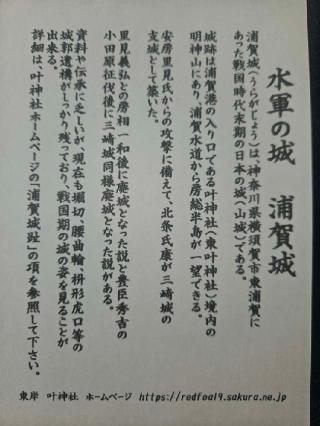 水軍の城　浦賀城
浦賀城(うらがじょう)は、神奈川県横須賀市東浦賀に
あった戦国時代末期の日本の城(山城)である。
城跡は浦賀港の入り口である叶神社(東叶神社)境内の
明神山にあり、浦賀水道から房総半島が一望できる。
安房里見氏からの攻撃に備えて、北条氏康が三崎城の
支城として築いた。
里見義弘との房相一和後に廃城となった説と豊臣秀吉の
小田原征伐後に三崎城同様廃城となった説がある。
資料や伝承に乏しいが、現在も堀切、腰曲輪、枡形虎口等の
城郭遺構がしっかり残っており、戦国期の城の姿を見ることが
出来る。
詳細は、叶神社ホームページの「浦賀城趾」の項を参照して下さい。
東岸　叶神社　ホームページ　https://redfoal9.sakura.ne.jp